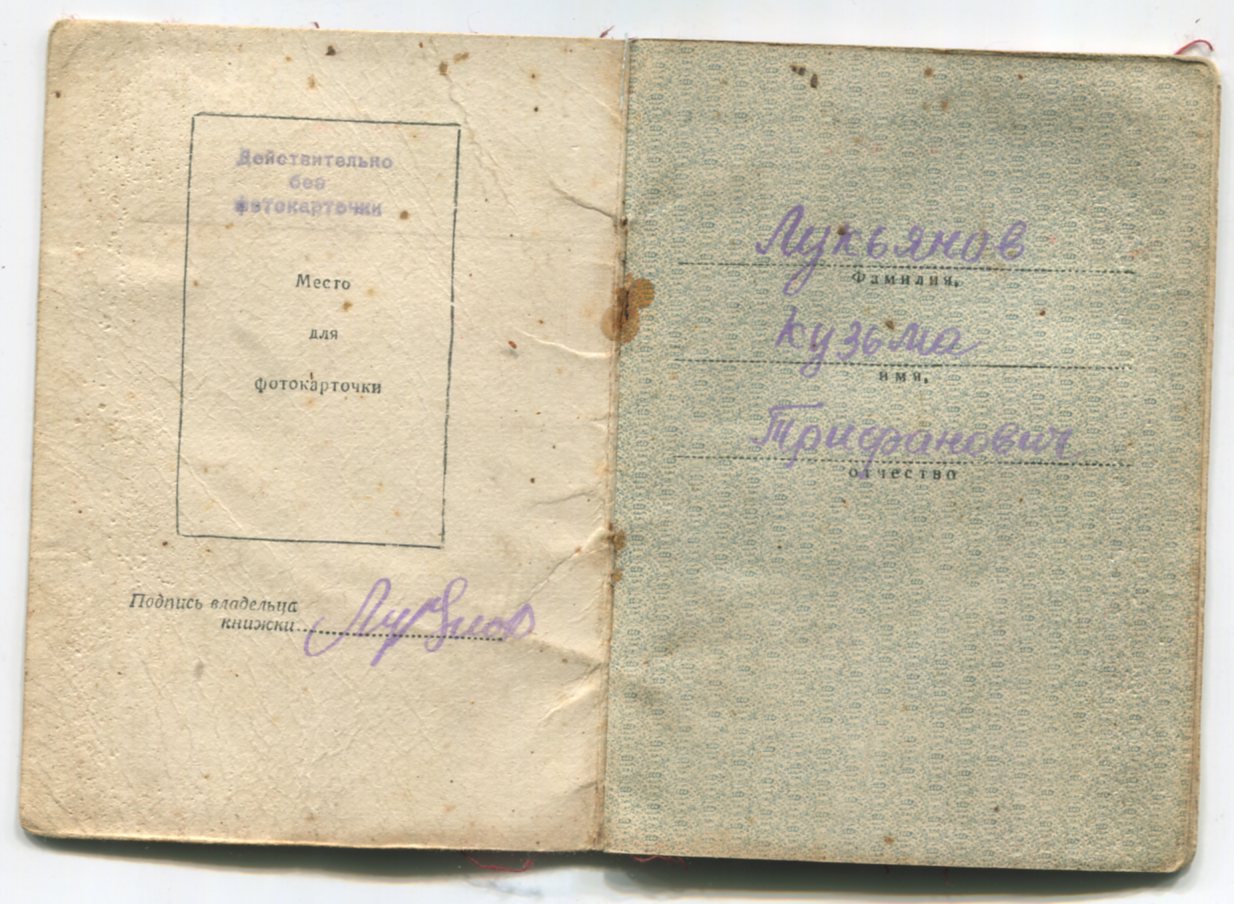 Действительно
без
фотокарточки
Место
для
фотокарточки
Подпись владельца
книжки
Лукьянов
Фамилия,
Кузьма
имя,
Трифанович
отчество